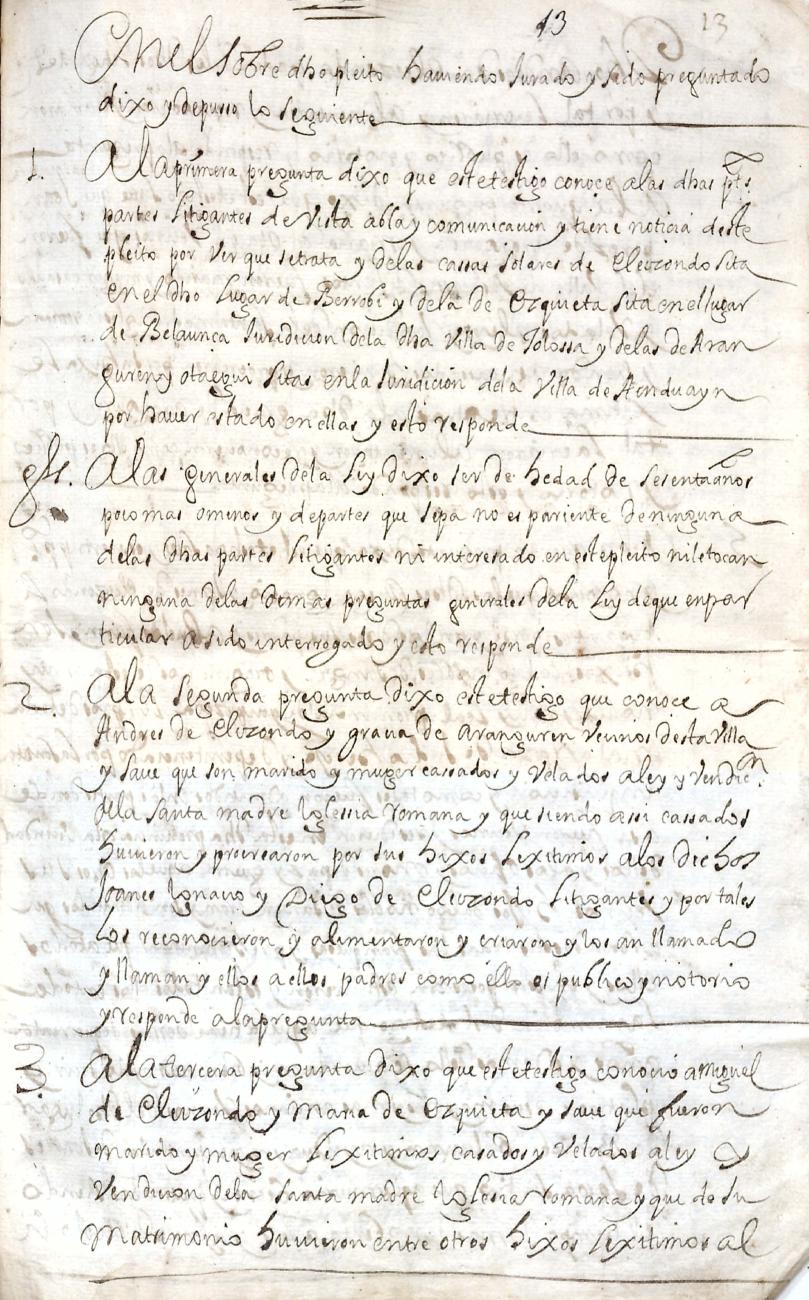 13 13
en el sobre dho pleito haviendo Jurado y sido preguntado
dixo y depusso lo seguiente
1. A la primera pregunta dixo que este testigo conoce a las dhas pts
partes Litigantes de Vista abla y comunicacion y tiene noticia deste
pleito por ver que se trata y de las cassas solares de Eleizondo sita
en el dho Lugar de Berrobi y de la de Ezquieta sita en el lugar
de Belaunça Juridicion de la dha Villa de Tolossa y de las de Aran
guren y otaegui sitas en la Juridicion de la Villa de Hernduayn
por haver estado en ellas y esto responde
gls. A las generales de la Ley dixo ser de hedad de sesenta años
poco mas o menos y de partes que sepa no es pariente de ninguna
de las dhas partes Litigantes ni interesado en este pleito ni le tocan
ninguna de las demas preguntas generales de la Ley de que en par
ticular a sido interrogado y esto responde
2. A la segunda pregunta dixo este testigo que conoce a
Andres de Eleizondo y gracia de aranguren vecinos desta Villa
y save que son marido y muger cassados y Velados a ley y Vendicn
de la santa madre Iglessia romana y que siendo assi cassados
huvieron y procrearon por sus hixos Lexitimos a los dichos
Joanes Ignacio y Diego de Eleizondo Litigantes y por tales
los reconocieron y alimentaron y criaron y los an llamado
y llaman y ellos a ellos padres como ello es publico y notorio
y responde a la pregunta
3. A la tercera pregunta dixo que este testigo conocio a Miguel
de Eleizondo y Maria de Ezquieta y save que fueron
marido y muger Lexitimos casados y Velados a ley y
Vendicion de la santa madre Iglesia romana y que de su
Matrimonio huvieron entre otros hixos Lexitimos al